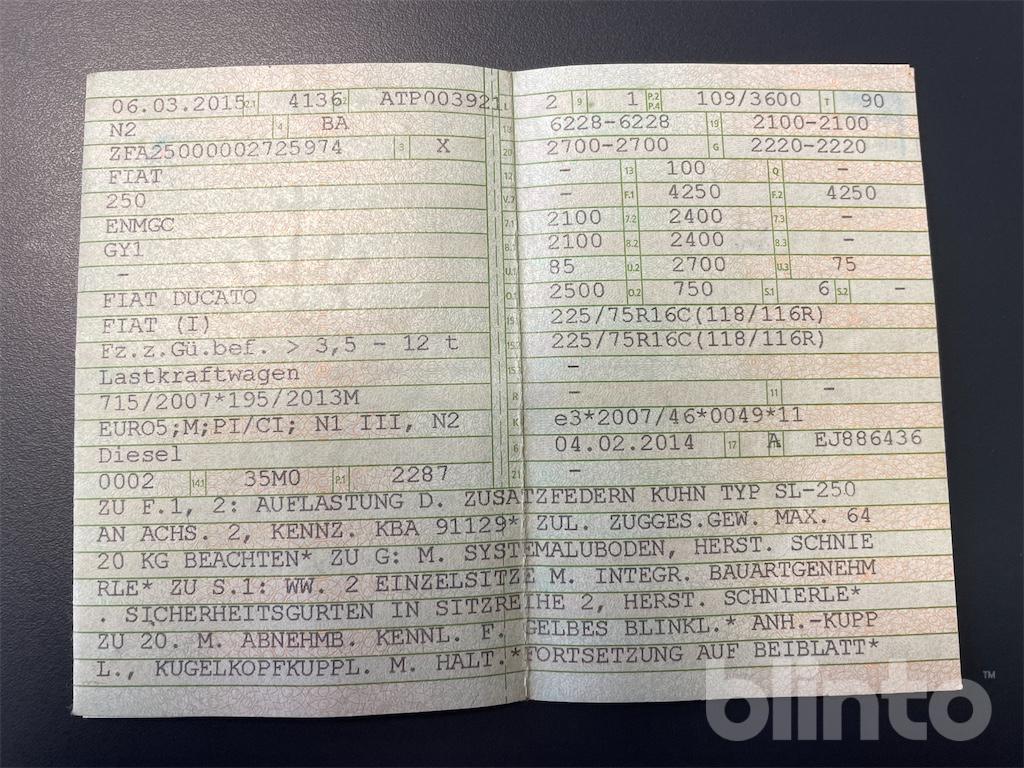 06.03.2015 2.1 4136 2.2 ATP003921
N2 4 BA
ZFA25000002725974 3 X
FIAT
250
ENMGC
GY1
-
FIAT DUCATO
FIAT (I)
Fz.z.Gü.bef. > 3,5 - 12 t
Lastkraftwagen
715/2007*195/2013M
EURO5;M;PI/CI; N1 III, N2
Diesel
0002 14.1 35M0 P.1 2287
L 2 9 1 P.2 P.4 109/3600 T 90
18 6228-6228 19 2100-2100
20 2700-2700 G 2220-2220
12 - 13 100 Q -
V.7 - F.1 4250 F.2 4250
7.1 2100 7.2 2400 7.3 -
8.1 2100 8.2 2400 8.3 -
U.1 85 U.2 2700 U.3 75
O.1 2500 O.2 750 S.1 6 S.2 -
15.1 225/75R16C(118/116R)
15.2 225/75R16C(118/116R)
15.3 -
R - 11 -
K e3*2007/46*0049*11
6 04.02.2014 17 A EJ886436
21 -
ZU F.1, 2: AUFLASTUNG D. ZUSATZFEDERN KUHN TYP SL-250
AN ACHS. 2, KENNZ. KBA 91129* ZUL. ZUGGES.GEW. MAX. 64
20 KG BEACHTEN* ZU G: M. SYSTEMALUBODEN, HERST. SCHNIE
RLE* ZU S.1: WW. 2 EINZELSITZE M. INTEGR. BAUARTGENEHM
. SICHERHEITSGURTEN IN SITZREIHE 2, HERST. SCHNIERLE*
ZU 20. M. ABNEHMB. KENNL. F. GELBES BLINKL.* ANH.-KUPP
L., KUGELKOPFKUPPL. M. HALT.*FORTSETZUNG AUF BEIBLATT*
blinto™